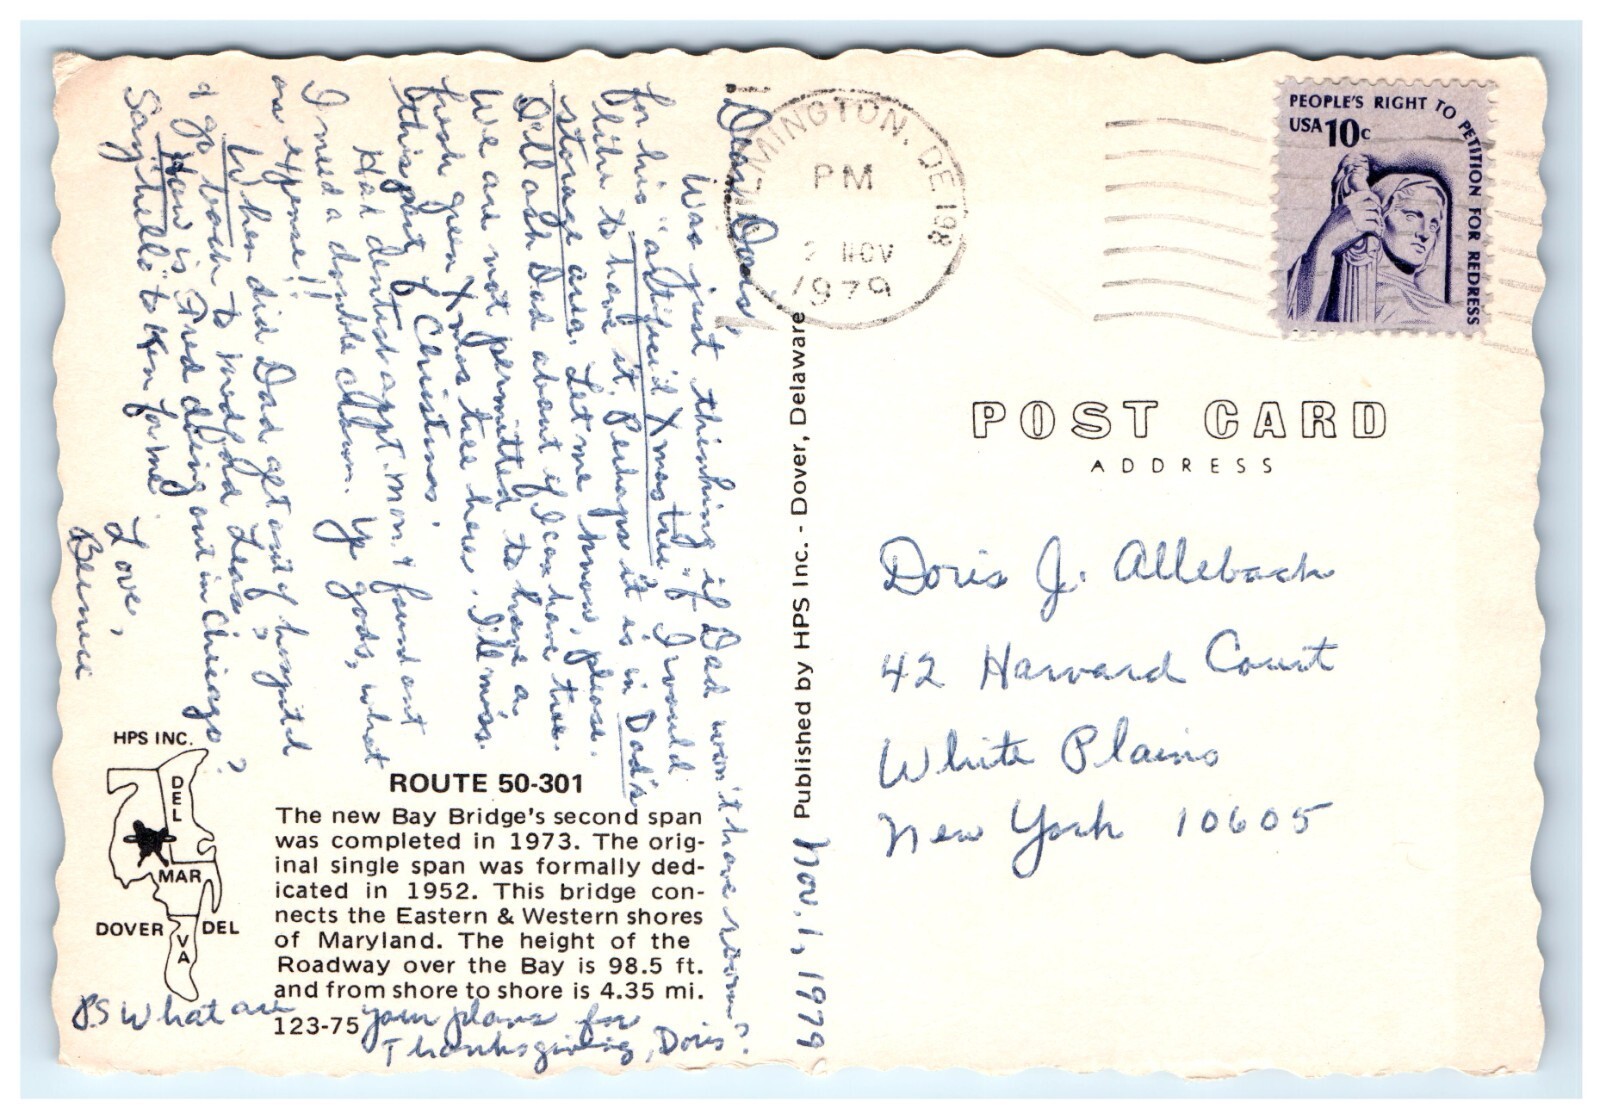 Nov. 1, 1979
Dear Doris,
Was just thinking if Dad won't have room
for his "artificial Xmas tree" I would
like to have it. Perhaps it is in Dad's
storage area. Let me know, please.
Will ask Dad about if I can have tree.
We are not permitted to have a
fresh green Xmas tree here. I'll miss
this part of Christmas.
Had dentist appt. Mon. & found out
I need a double crown. Ye gods, what
an expense!!
When did Dad get out of hospital
& go back to Medford Leas?
How is Fred doing out in Chicago?
Say "hello" to Ken for me.
Love,
Bernice
PS What are
your plans for
Thanksgiving, Doris?
HPS INC.
DEL
MAR
VA
DOVER DEL
ROUTE 50-301
The new Bay Bridge's second span
was completed in 1973. The orig-
inal single span was formally ded-
icated in 1952. This bridge con-
nects the Eastern & Western shores
of Maryland. The height of the
Roadway over the Bay is 98.5 ft.
and from shore to shore is 4.35 mi.
123-75
Published by HPS Inc. - Dover, Delaware
WILMINGTON, DE 198
PM
2 NOV
1979
PEOPLE'S RIGHT TO PETITION FOR REDRESS
USA 10c
POST CARD
ADDRESS
Doris J. Allebach
42 Harvard Court
White Plains
New York 10605